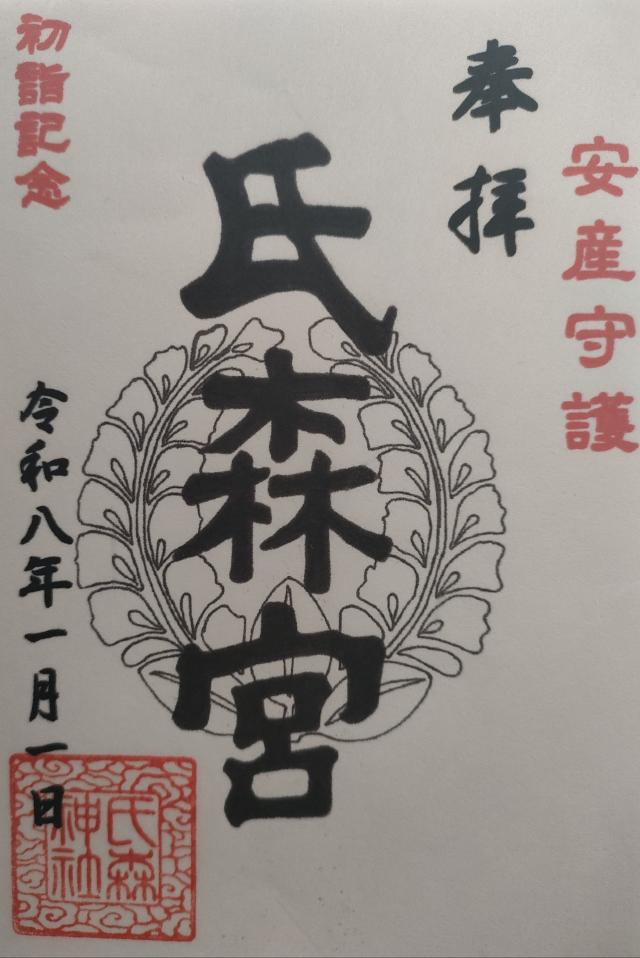 安産守護
奉拝
氏森宮
初詣記念
令和八年一月一日
氏森
神社